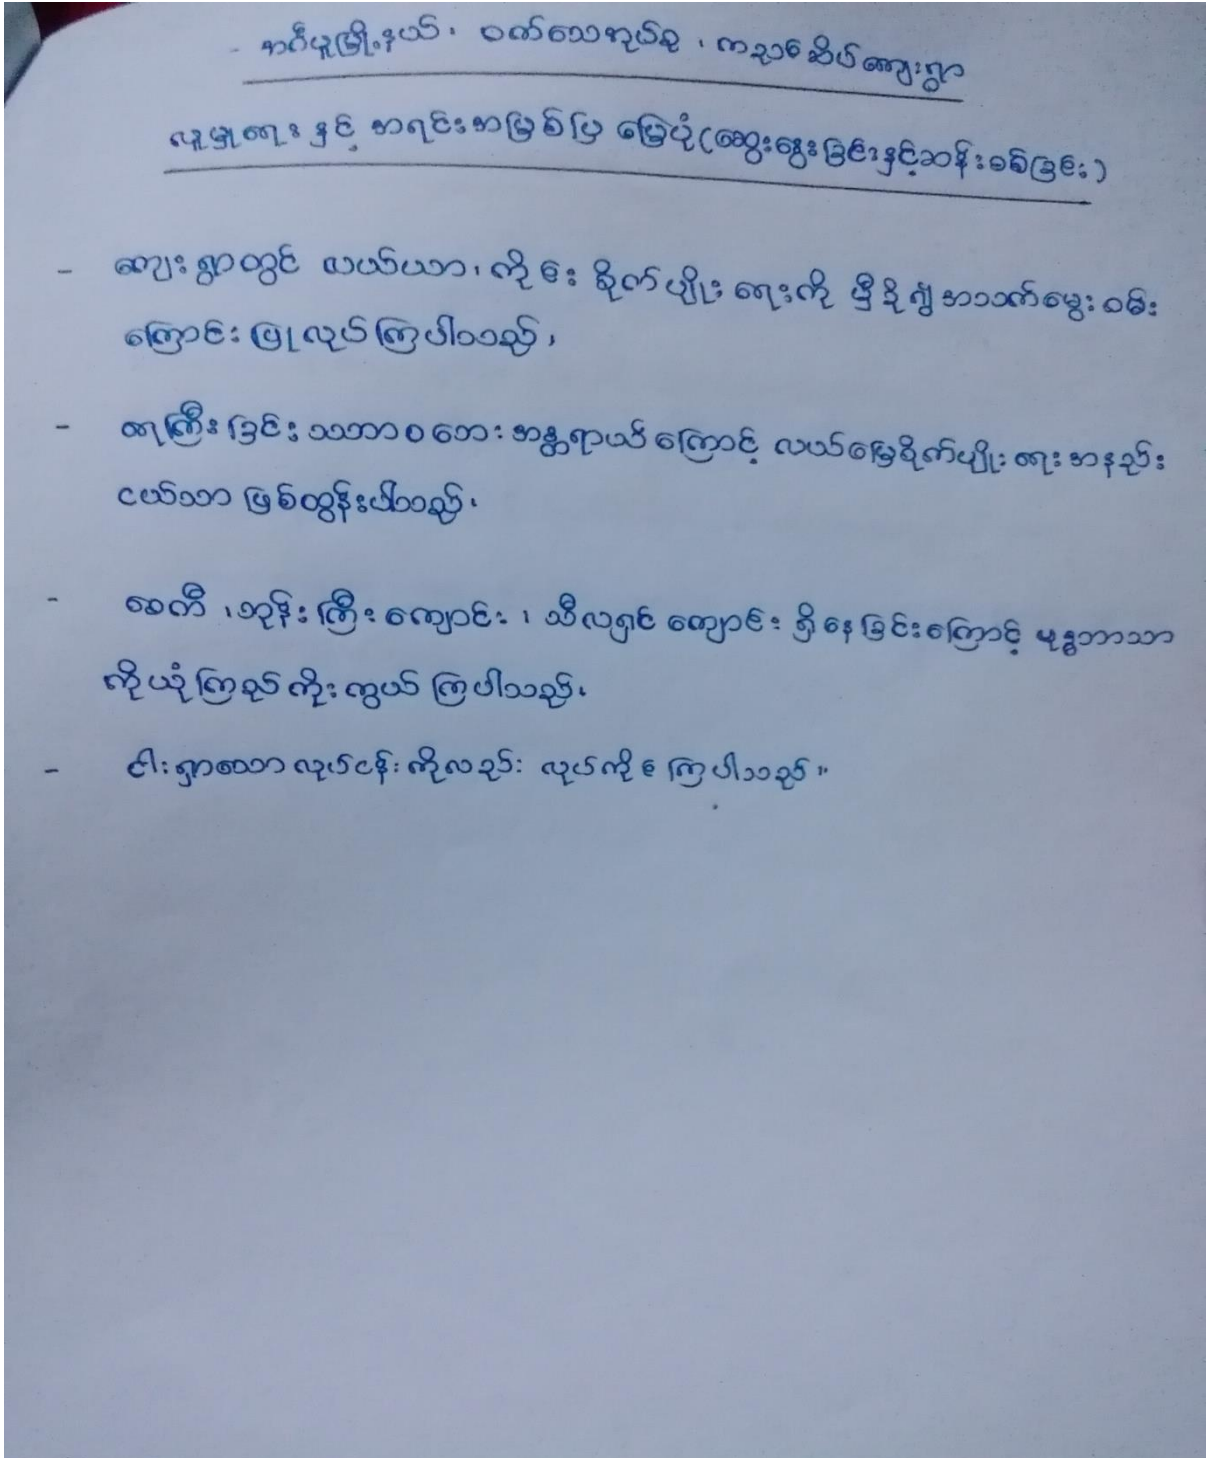 - အင်္ဂပူမြို့နယ်၊ ဝက်သေအုပ်စု၊ ကညင်ဆိပ်ကျေးရွာ
လူမှုရေးနှင့် အရင်းအမြစ်ပြ မြေပုံ(ဆွေးနွေးခြင်းနှင့်ဆန်းစစ်ခြင်း)
- ကျေးရွာတွင် လယ်ယာ၊ ကိုင်း စိုက်ပျိုးရေးကို မှီခို၍ အသက်မွေးဝမ်း
ကြောင်းပြုလုပ်ကြပါသည်၊
- ရေကြီးခြင်း သဘာဝဘေးအန္တရာယ်ကြောင့် လယ်မြေစိုက်ပျိုးရေးအနည်း
ငယ်သာဖြစ်ထွန်းပါသည်၊
- စေတီ၊ ဘုန်းကြီးကျောင်း၊ သီလရှင်ကျောင်း ရှိနေခြင်းကြောင့် ဗုဒ္ဓဘာသာ
ကိုယုံကြည်ကိုးကွယ်ကြပါသည်၊
- ငါးရှာသောလုပ်ငန်းကိုလည်း လုပ်ကိုင်ကြပါသည်။